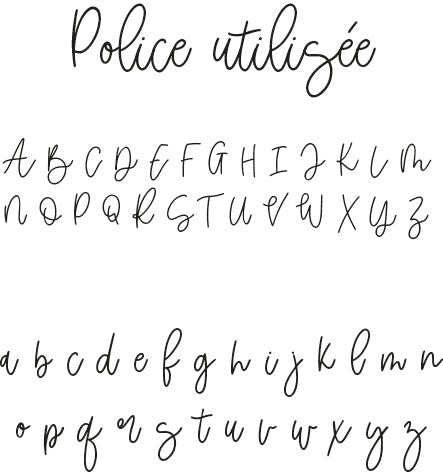 Police utilisée
A B C D E F G H I J K L M
N O P Q R S T U V W X Y Z
a b c d e f g h i j k l m n
o p q r s t u v w x y z